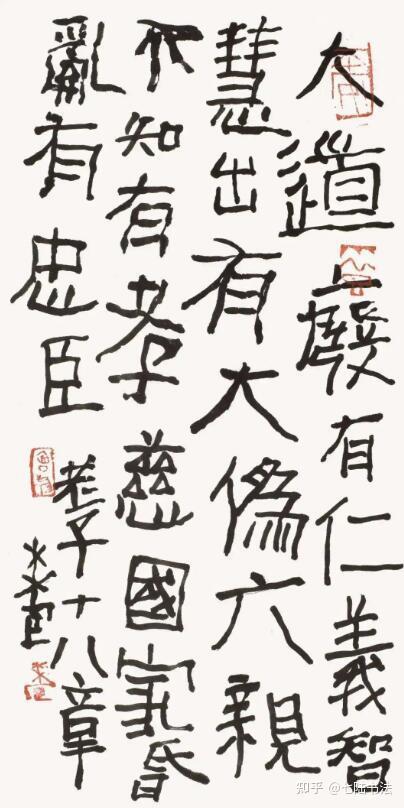 大道廢有仁義智
慧出有大偽六親
不知有孝慈國家昏
亂有忠臣
老子十八章
知乎 @七陆书法